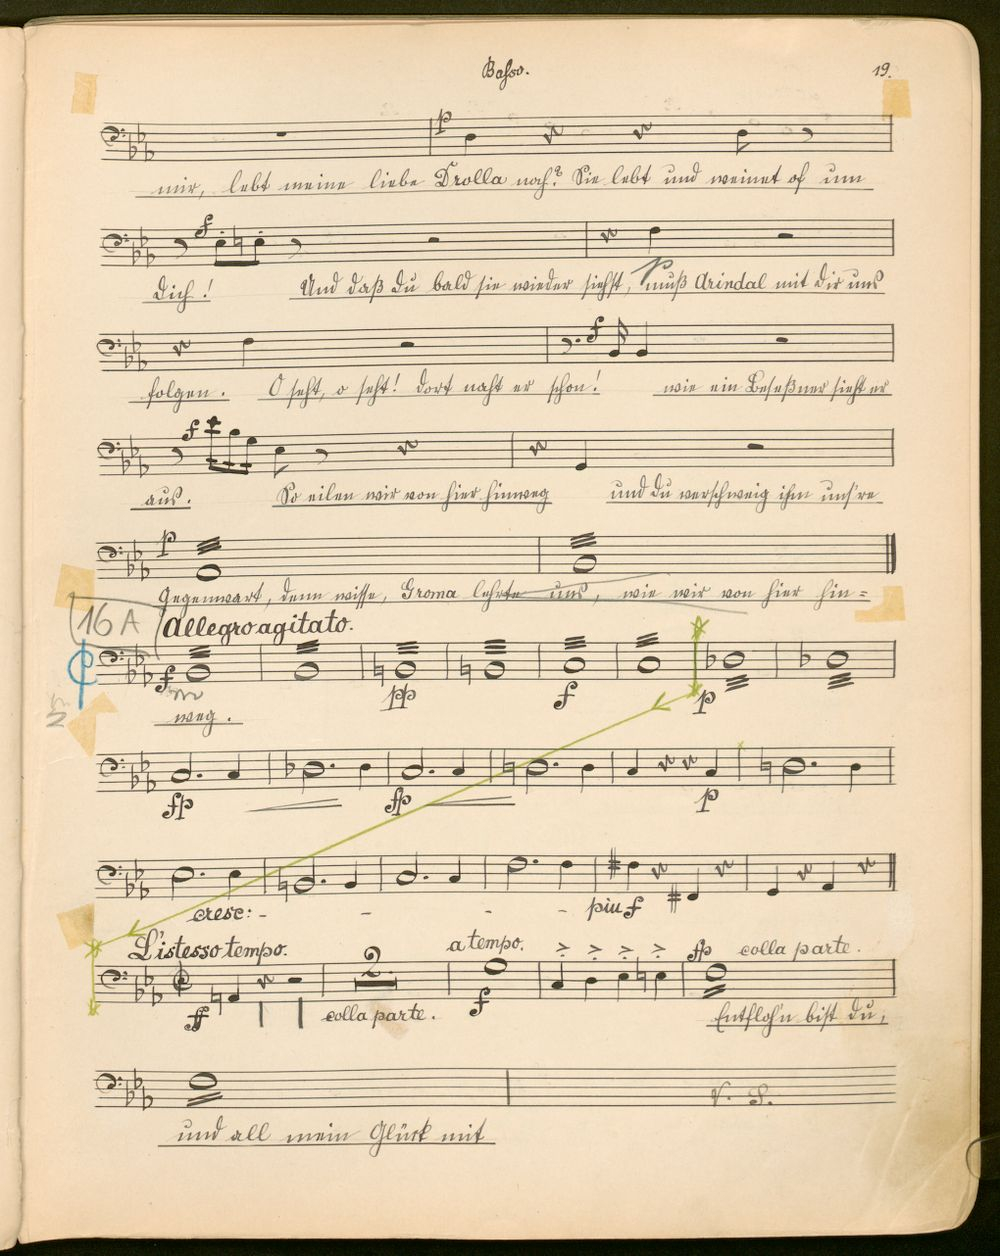 Basso.
19.
p
mir, lebt meine liebe Drolla noch? Sie lebt und weinet oft um
f
Dich! Und daß Du bald sie wieder siehst, muß Arindal mit Dir uns
p
f
folgen. O seht, o seht! dort naht er schon! wie ein Beseßner sieht er
f
aus. So eilen wir von hier hinweg und Du verschweig ihm uns're
p
Gegenwart, denn wisse, Groma lehrte uns, wie wir von hier hin=
16A Allegro agitato.
f pp f p
weg.
fp fp p
cresc: - - - - piu f
L'istesso tempo. a tempo. fp colla parte.
ff 2. colla parte. f
Entfloh'n bist du,
V. S.
und all mein Glück mit